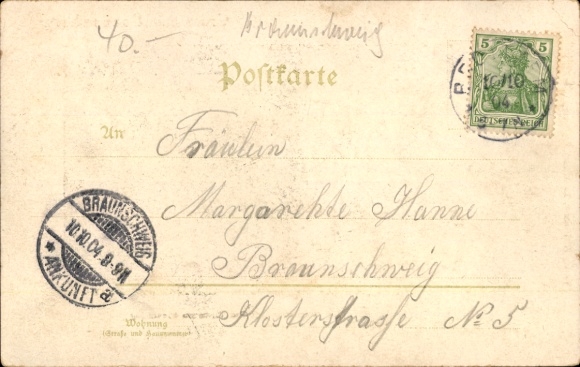 40.-
Braunschweig
Postkarte
5 5
10/10
04
DEUTSCHES REICH
An
Fräulein
Margarehte Hanne
Braunschweig
Klosterstrasse No 5
Wohnung
(Straße und Hausnummer)
BRAUNSCHWEIG
10.10.04.8-9N
* ANKUNFT a